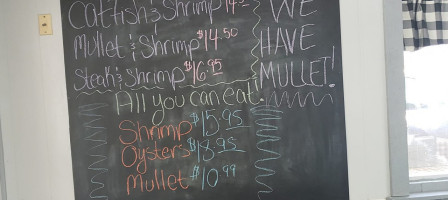 Catfish & Shrimp
Mullet & Shrimp $14.50
Steak & Shrimp $16.95
WE
HAVE
MULLET!
All you can eat
Shrimp $15.95
Oysters $18.95
Mullet $10.99